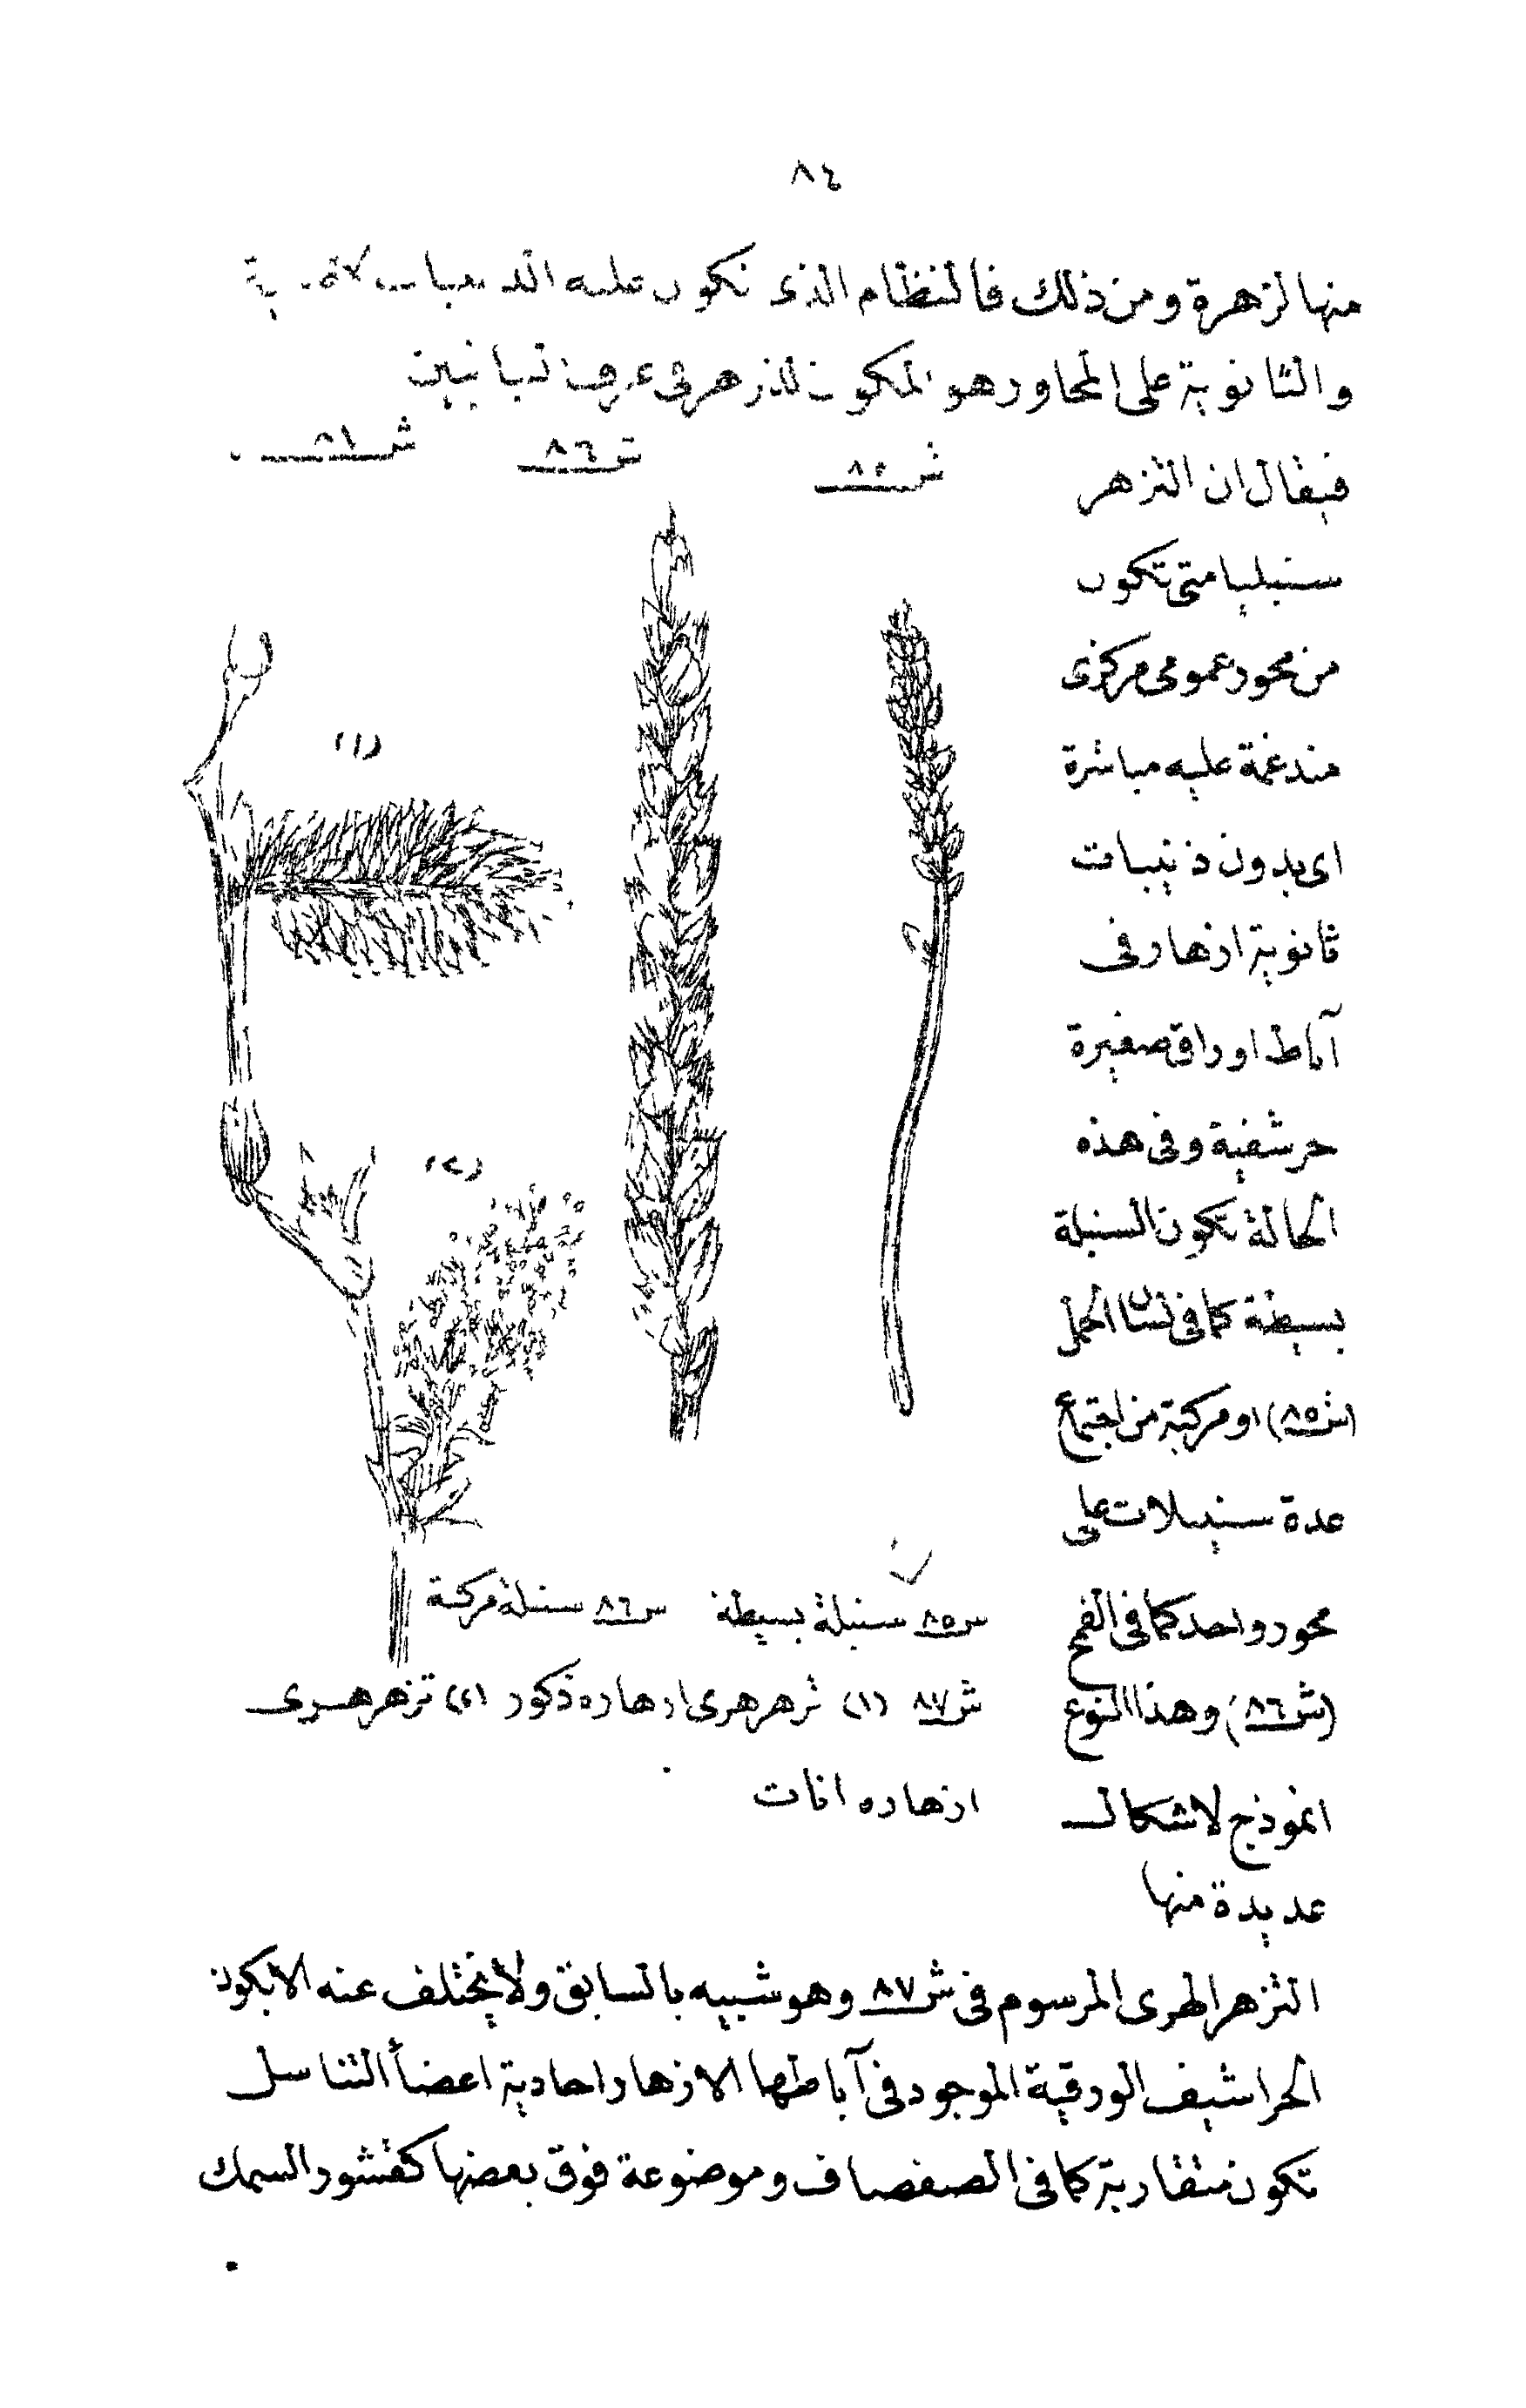 ٨٤
منها لزهرة ومن ذلك فالنظام الذى تكون عليه
والثانوية على المحاور هو المكون للتزهر فى عرف النباتيين
ش ٨٥ ش ٨٦ ش
فيقال ان التزهر
سنبليا متى تكون
من محور عمومى مركزى
مندغمة عليه مباشرة
اى بدون ذنيبات
ثانوية ازهار فى
آباط اوراق صغيرة
حرشفية وفى هذه
الحالة تكون السنبلة
بسيطة كما فى لسان الحمل
(ش ٨٥) او مركبة من اجتماع
عدة سنيبلات على
محور واحد كما فى القمح
(ش ٨٦) وهذا النوع
انموذج لاشكال
عديدة منها
(١)
(٢)
ش ٨٥ سنبلة بسيطة ش ٨٦ سنبلة مركبة
ش ٨٧ (١) تزهر هرى ازهاره ذكور (٢) تزهر هرى
ازهاره اناث
التزهر الهرى المرسوم فى ش ٨٧ وهو شبيه بالسابق ولا يختلف عنه الا بكون
الحراشيف الورقية الموجود فى آباطها الازهار احادية اعضأ التناسل
تكون متقاربة كما فى الصفصاف وموضوعة فوق بعضها كقشور السمك